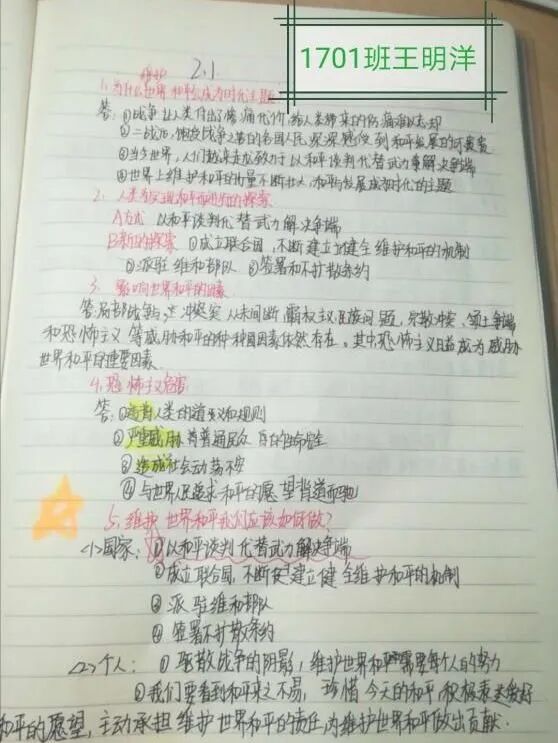 1701班王明洋
2.1
维护
1.为什么世界和平会成为时代主题
答:①战争让人类付出了惨痛代价,给人类带来的伤痛难以忘却
②二战后,饱受战争之苦的各国人民深深感受到和平发展的可贵
③当今世界,人们越来越致力于以和平谈判代替武力来解决争端
④世界上维护和平的力量不断壮大,和平与发展成为时代的主题
2.人类为实现和平而进行的探索
A方式 以和平谈判代替武力解决争端
B新的探索 ①成立联合国,不断建立健全维护和平的机制
②派驻维和部队 ③签署和不扩散条约
3.影响世界和平的因素
答:局部战争与 冲突 从未间断,霸权主义民族问题,宗教冲突、领土争端
和恐怖主义等威胁和平的种种因素依然存在。其中恐怖主义日益成为威胁
世界和平的重要因素
4.恐怖主义危害
答:①违背人类的道义和规则
②严重威胁着普通民众 的生命安全
③造成社会动荡不安
④与世界人民追求和平的愿望背道而驰
5.维护世界和平我们应该如何做?
<1>国家:①以和平谈判代替武力解决争端
②成立联合国,不断 建立健全维护和平的机制
③派驻维和部队
④签署不扩散条约
<2>个人:①驱散战争的阴影,维护世界和平需要每个人的努力
②我们要看到和平来之不易,珍惜今天的和平,积极表达爱好
和平的愿望,主动承担维护世界和平的责任,为维护世界和平做出贡献.